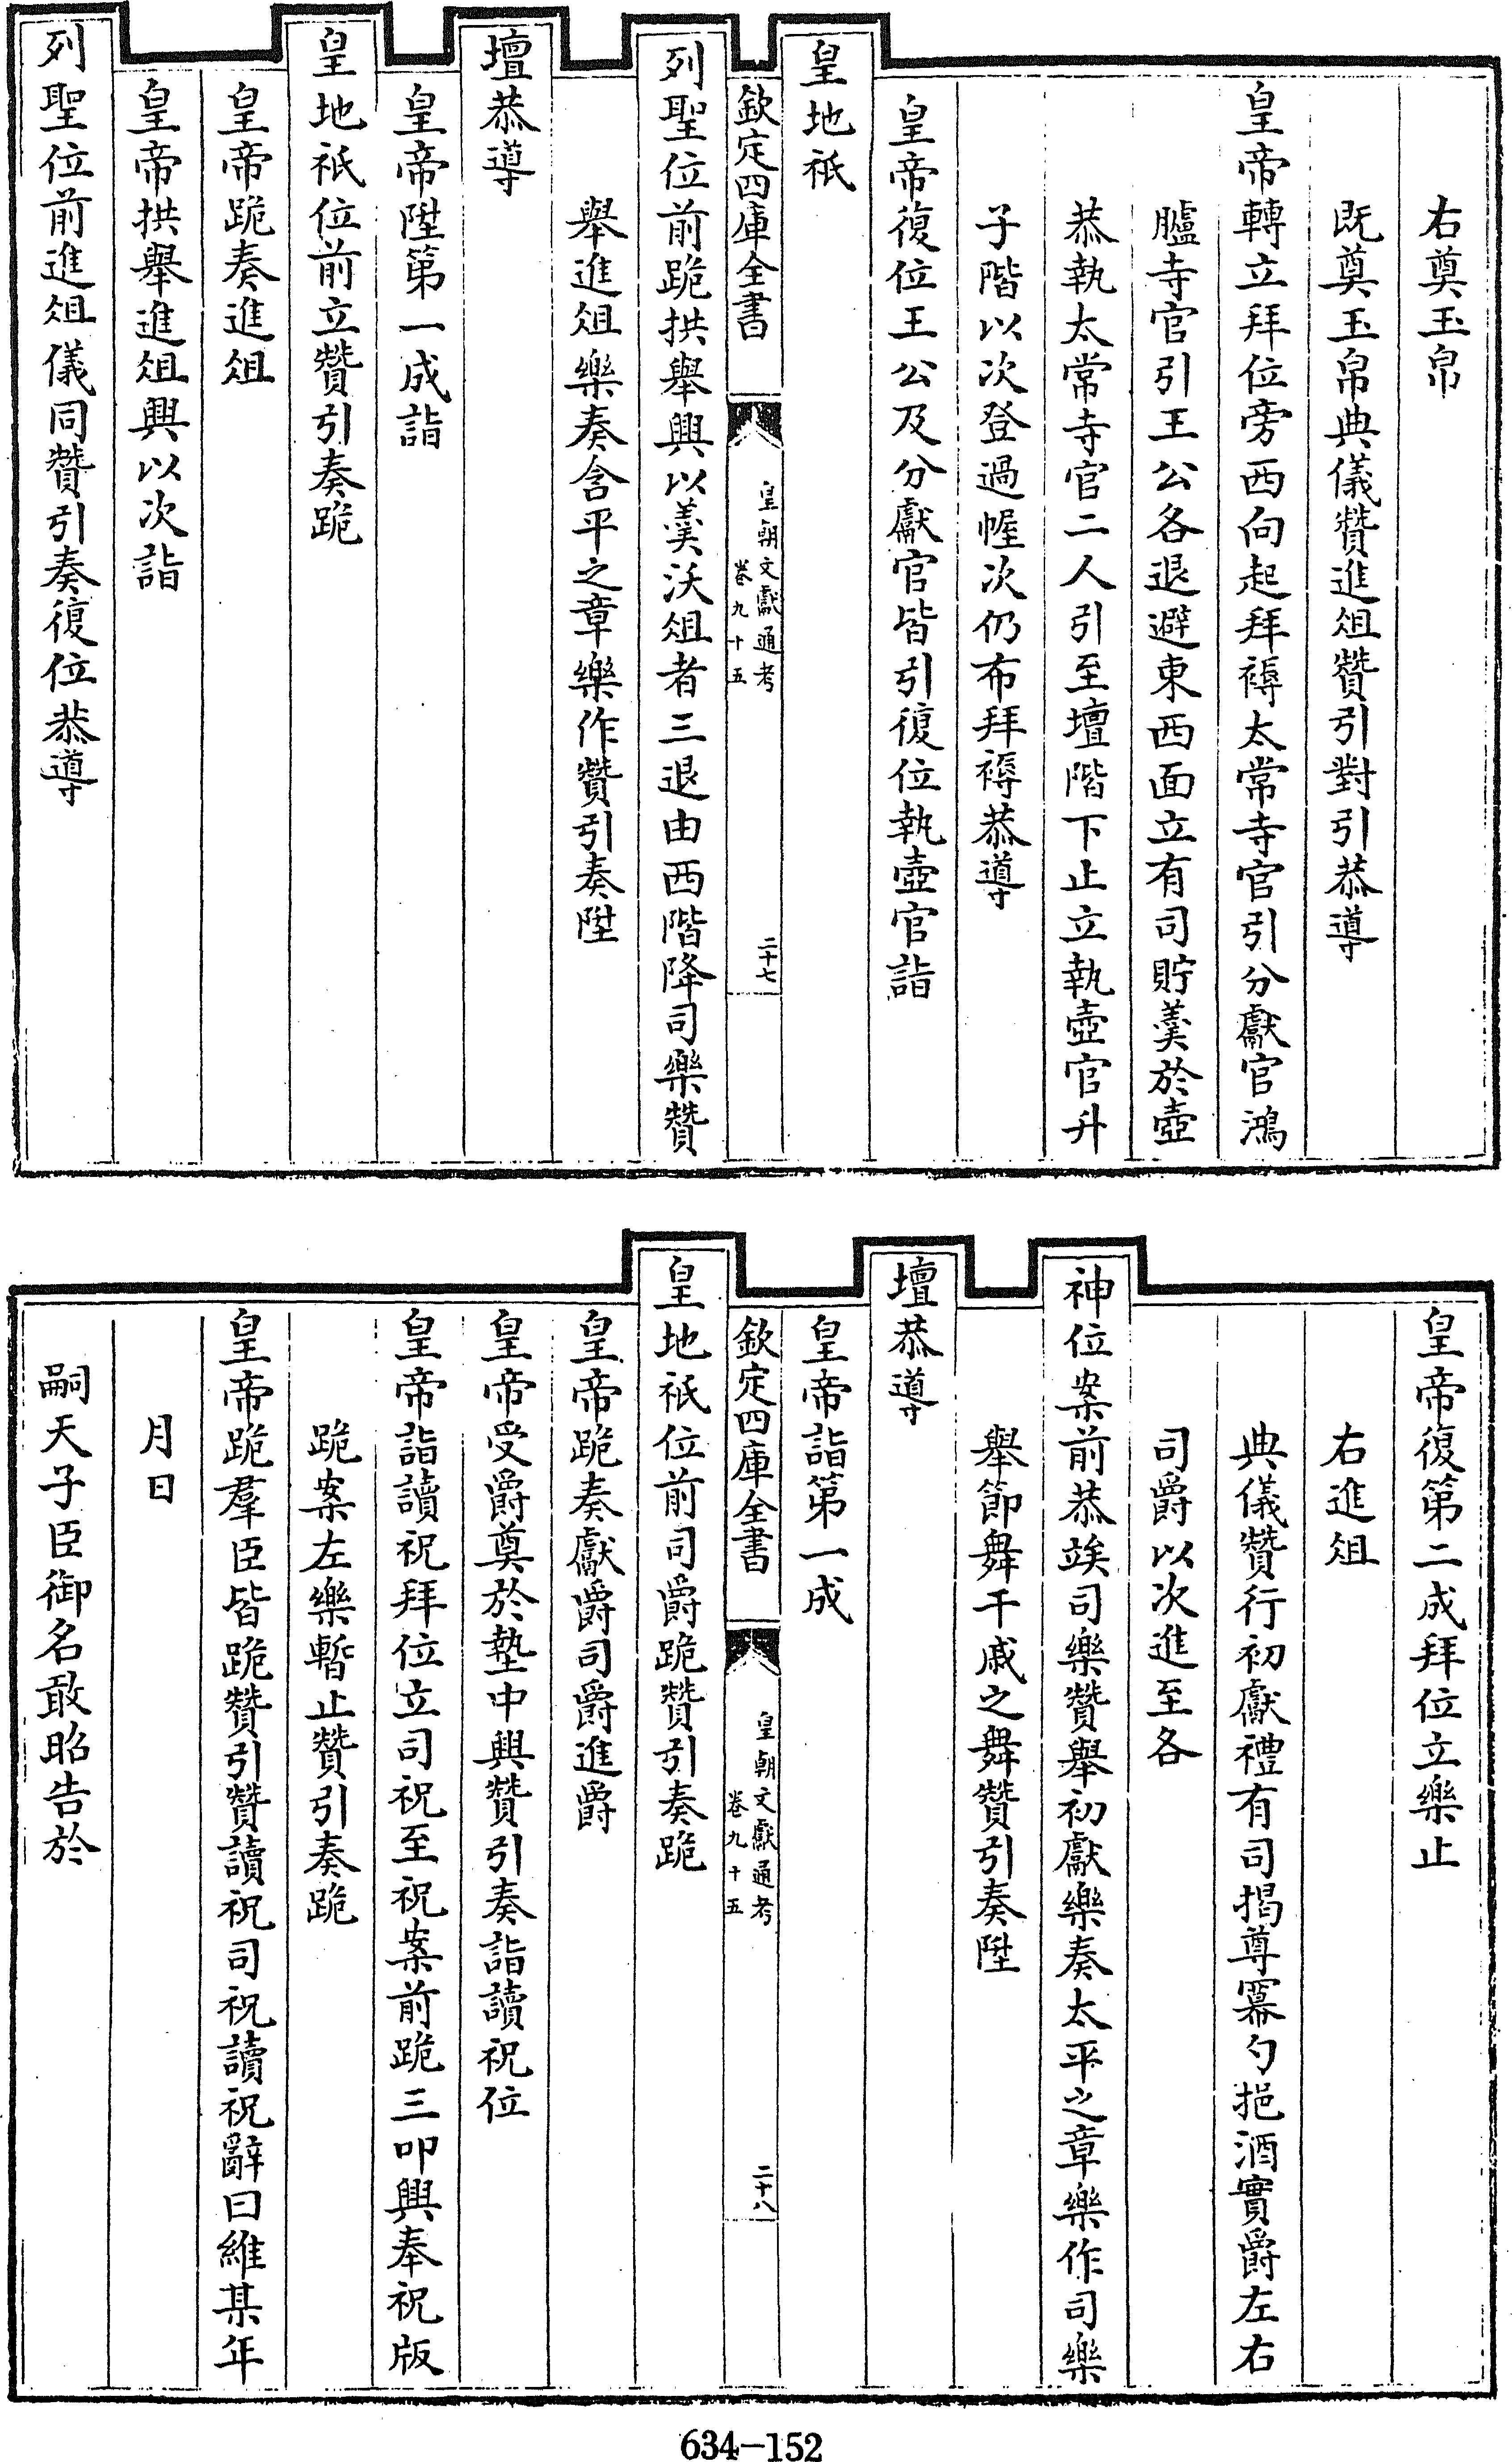 右奠玉帛
既奠玉帛典儀贊進俎贊引對引恭導
皇帝轉立拜位旁西向起拜褥太常寺官引分獻官鴻
臚寺官引王公各退避東西面立有司貯羹於壺
恭執太常寺官二人引至壇階下止立執壺官升
子階以次登過幄次仍布拜褥恭導
皇帝復位王公及分獻官皆引復位執壺官詣
皇地祇
欽定四庫全書
皇朝文獻通考
卷九十五
二十七
列聖位前跪拱舉興以羹沃俎者三退由西階降司樂贊
舉進俎樂奏含平之章樂作贊引奏陞
壇恭導
皇帝陞第一成詣
皇地祇位前立贊引奏跪
皇帝跪奏進俎
皇帝拱舉進俎興以次詣
列聖位前進俎儀同贊引奏復位恭導
皇帝復第二成拜位立樂止
右進俎
典儀贊行初獻禮有司揭尊冪勺挹酒實爵左右
司爵以次進至各
神位案前恭竢司樂贊舉初獻樂奏太平之章樂作司樂
舉節舞干戚之舞贊引奏陞
壇恭導
皇帝詣第一成
欽定四庫全書
皇朝文獻通考
卷九十五
二十八
皇地祇位前司爵跪贊引奏跪
皇帝跪奏獻爵司爵進爵
皇帝受爵奠於墊中興贊引奏詣讀祝位
皇帝詣讀祝拜位立司祝至祝案前跪三叩興奉祝版
跪案左樂暫止贊引奏跪
皇帝跪羣臣皆跪贊引贊讀祝司祝讀祝辭曰維某年
月日
嗣天子臣御名敢昭告於
634-152